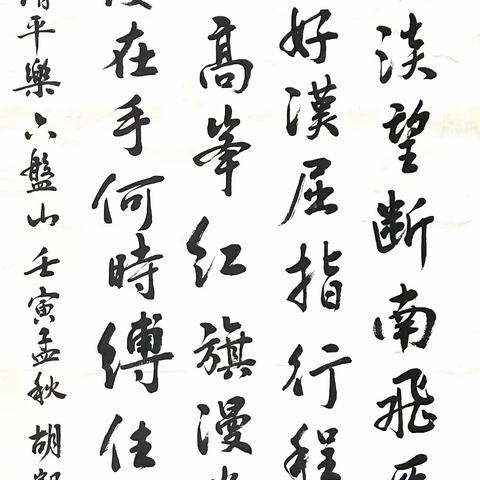 淡望斷南飛
好漢屈指行程
高峯紅旗漫
在手何時縛住
平樂六盤山壬寅孟秋胡